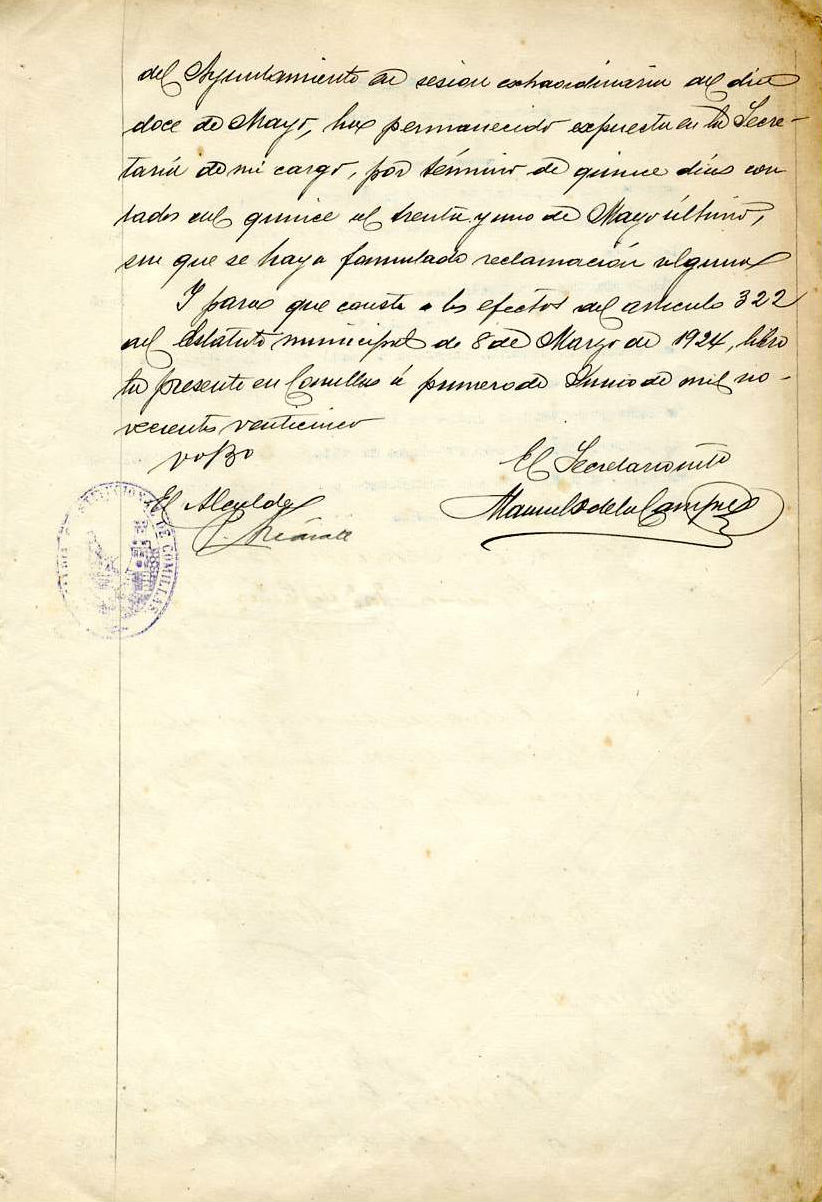 del Ayuntamiento en sesion extraordinaria del dia
doce de Mayo, ha permanecido expuesta en la Secre-
taria de mi cargo, por término de quince dias con
tados del quince al treinta y uno de Mayo último,
sin que se haya formulado reclamación alguna
Y para que conste a los efectos del articulo 322
del Estatuto municipal de 8 de Marzo de 1924, libro
la presente en Comillas á primero de Junio de mil no-
vecientos venticinco
VoBo
El Secretario
El Alcalde
Manuel de la Campa
CONSTITUCIONAL DE COMILLAS